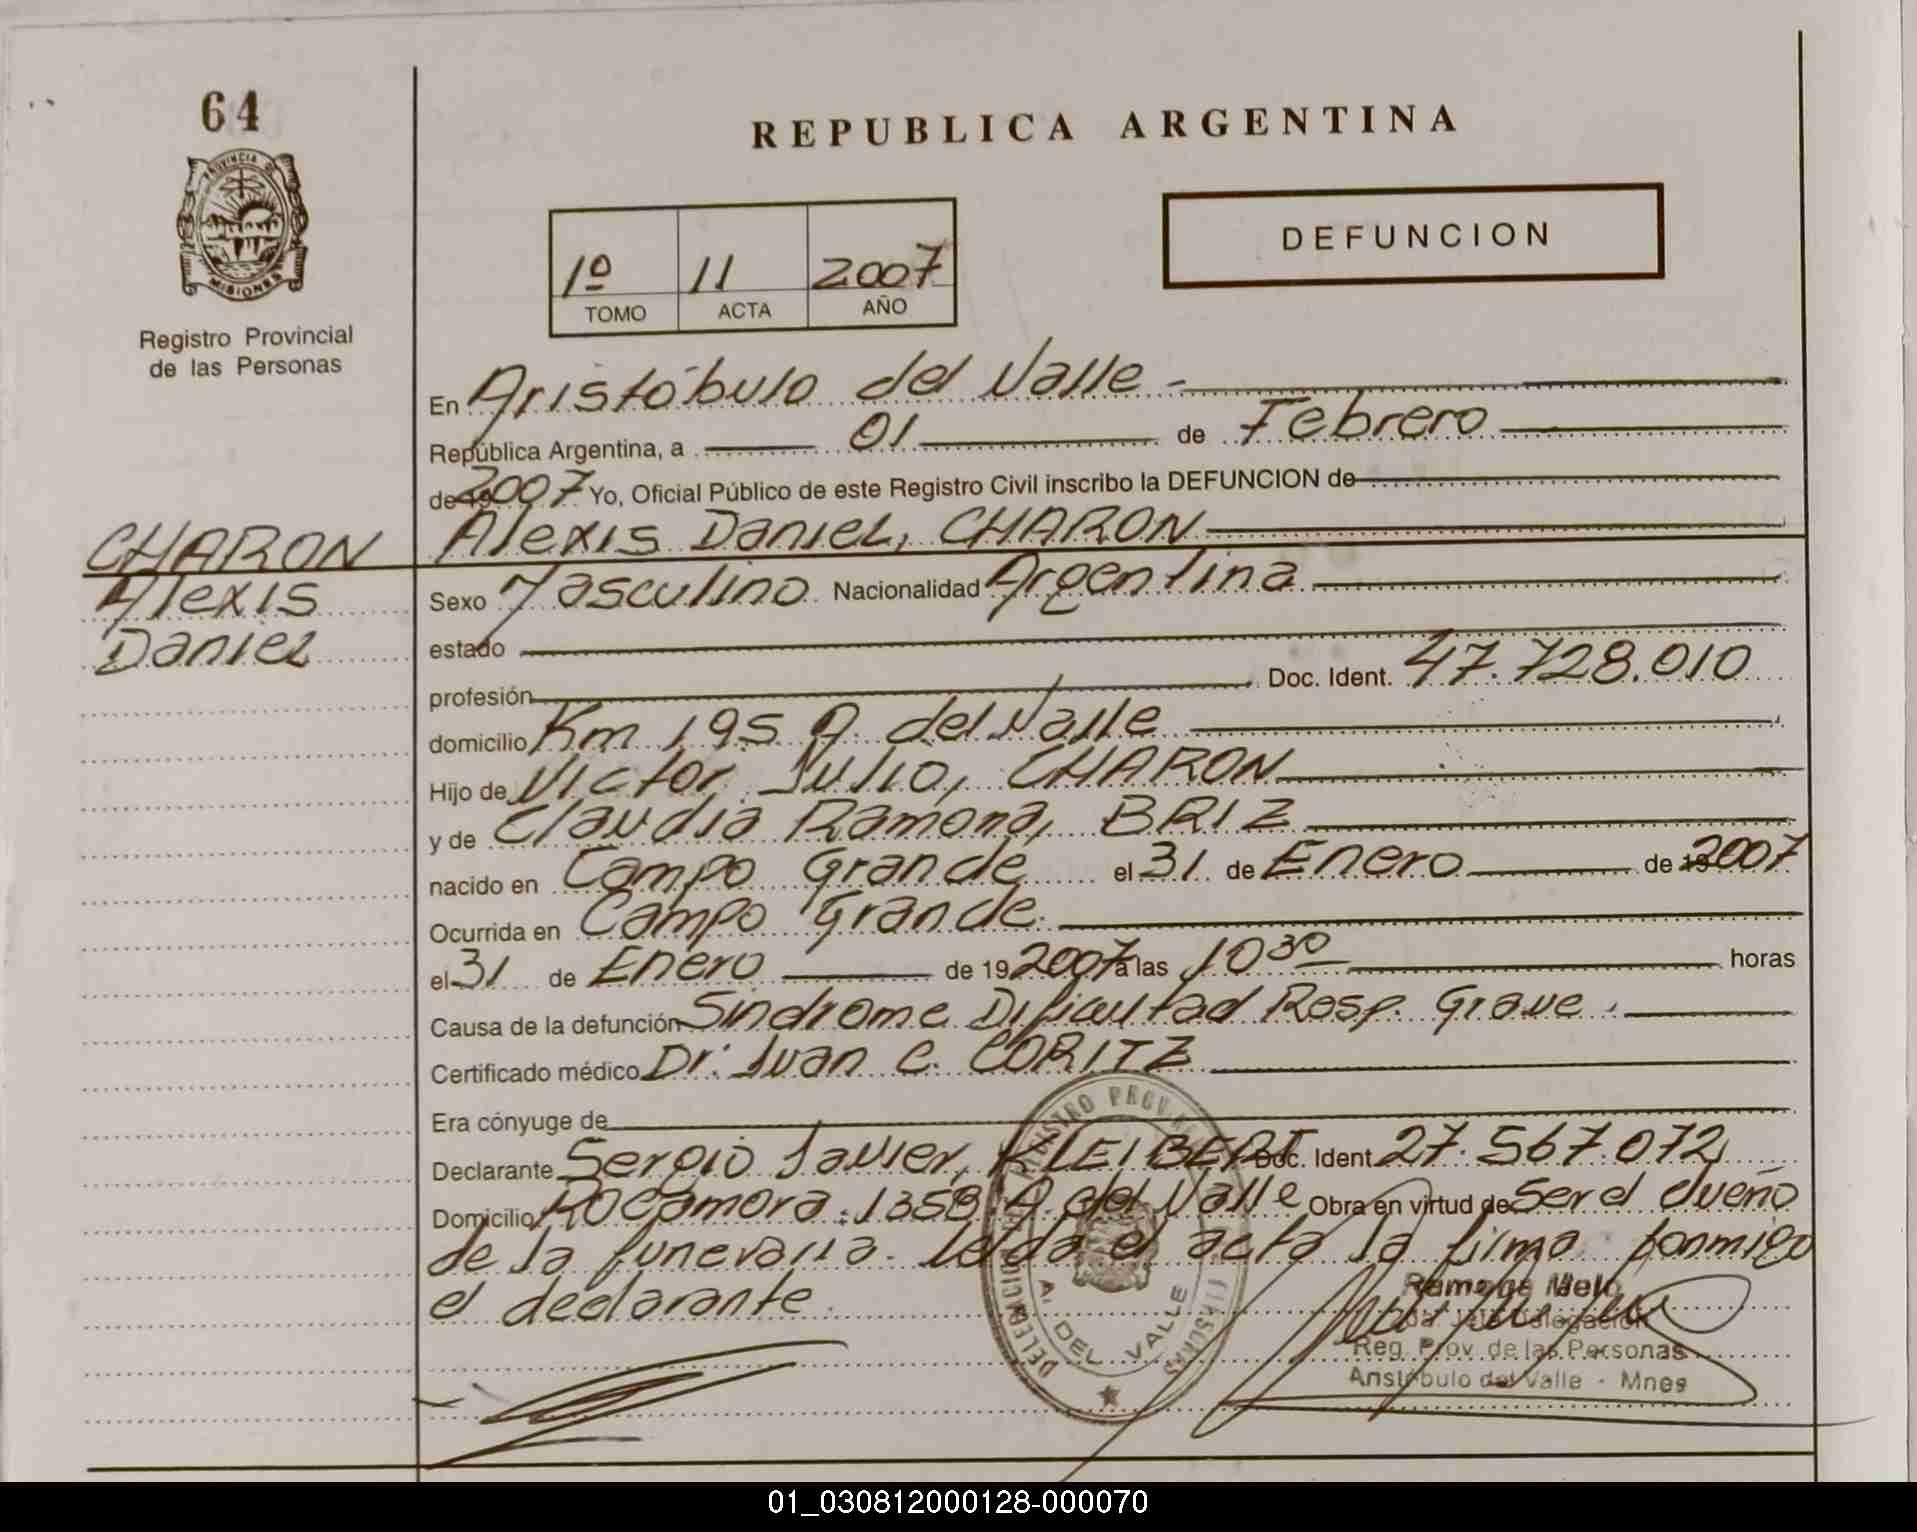 64
PROVINCIA DE
MISIONES
Registro Provincial
de las Personas
REPUBLICA ARGENTINA
1º 11 2007
TOMO ACTA AÑO
DEFUNCION
En Aristóbulo del Valle -
República Argentina, a 01 de Febrero
de 19 2007 Yo, Oficial Público de este Registro Civil inscribo la DEFUNCION de
CHARON Alexis Daniel, CHARON
Alexis Sexo Masculino Nacionalidad Argentina
Daniel estado
profesión Doc. Ident. 47.728.010
domicilio Km 195 A. del Valle
Hijo de Victor Julio, CHARON
y de Claudia Ramona, BRIZ
nacido en Campo Grande el 31 de Enero de 19 2007
Ocurrida en Campo Grande.
el 31 de Enero de 19 2007 a las 10 30 horas
Causa de la defunción Sindrome Dificultad Resp. Grave.
Certificado médico Dr. Juan C. CORITZ
Era cónyuge de
Declarante Sergio Javier, KLEIBERT Doc. Ident 27.567.072
Domicilio Rocamora 1358 A. del Valle Obra en virtud de Ser el dueño
de la funeraria. Leida el acta la firma conmigo
el declarante.
REGISTRO
DELEGACION
A. DEL VALLE
Ramona Melo
Jefa Delegación
Reg. Prov. de las Personas
Aristóbulo del Valle - Mnes
01_030812000128-000070